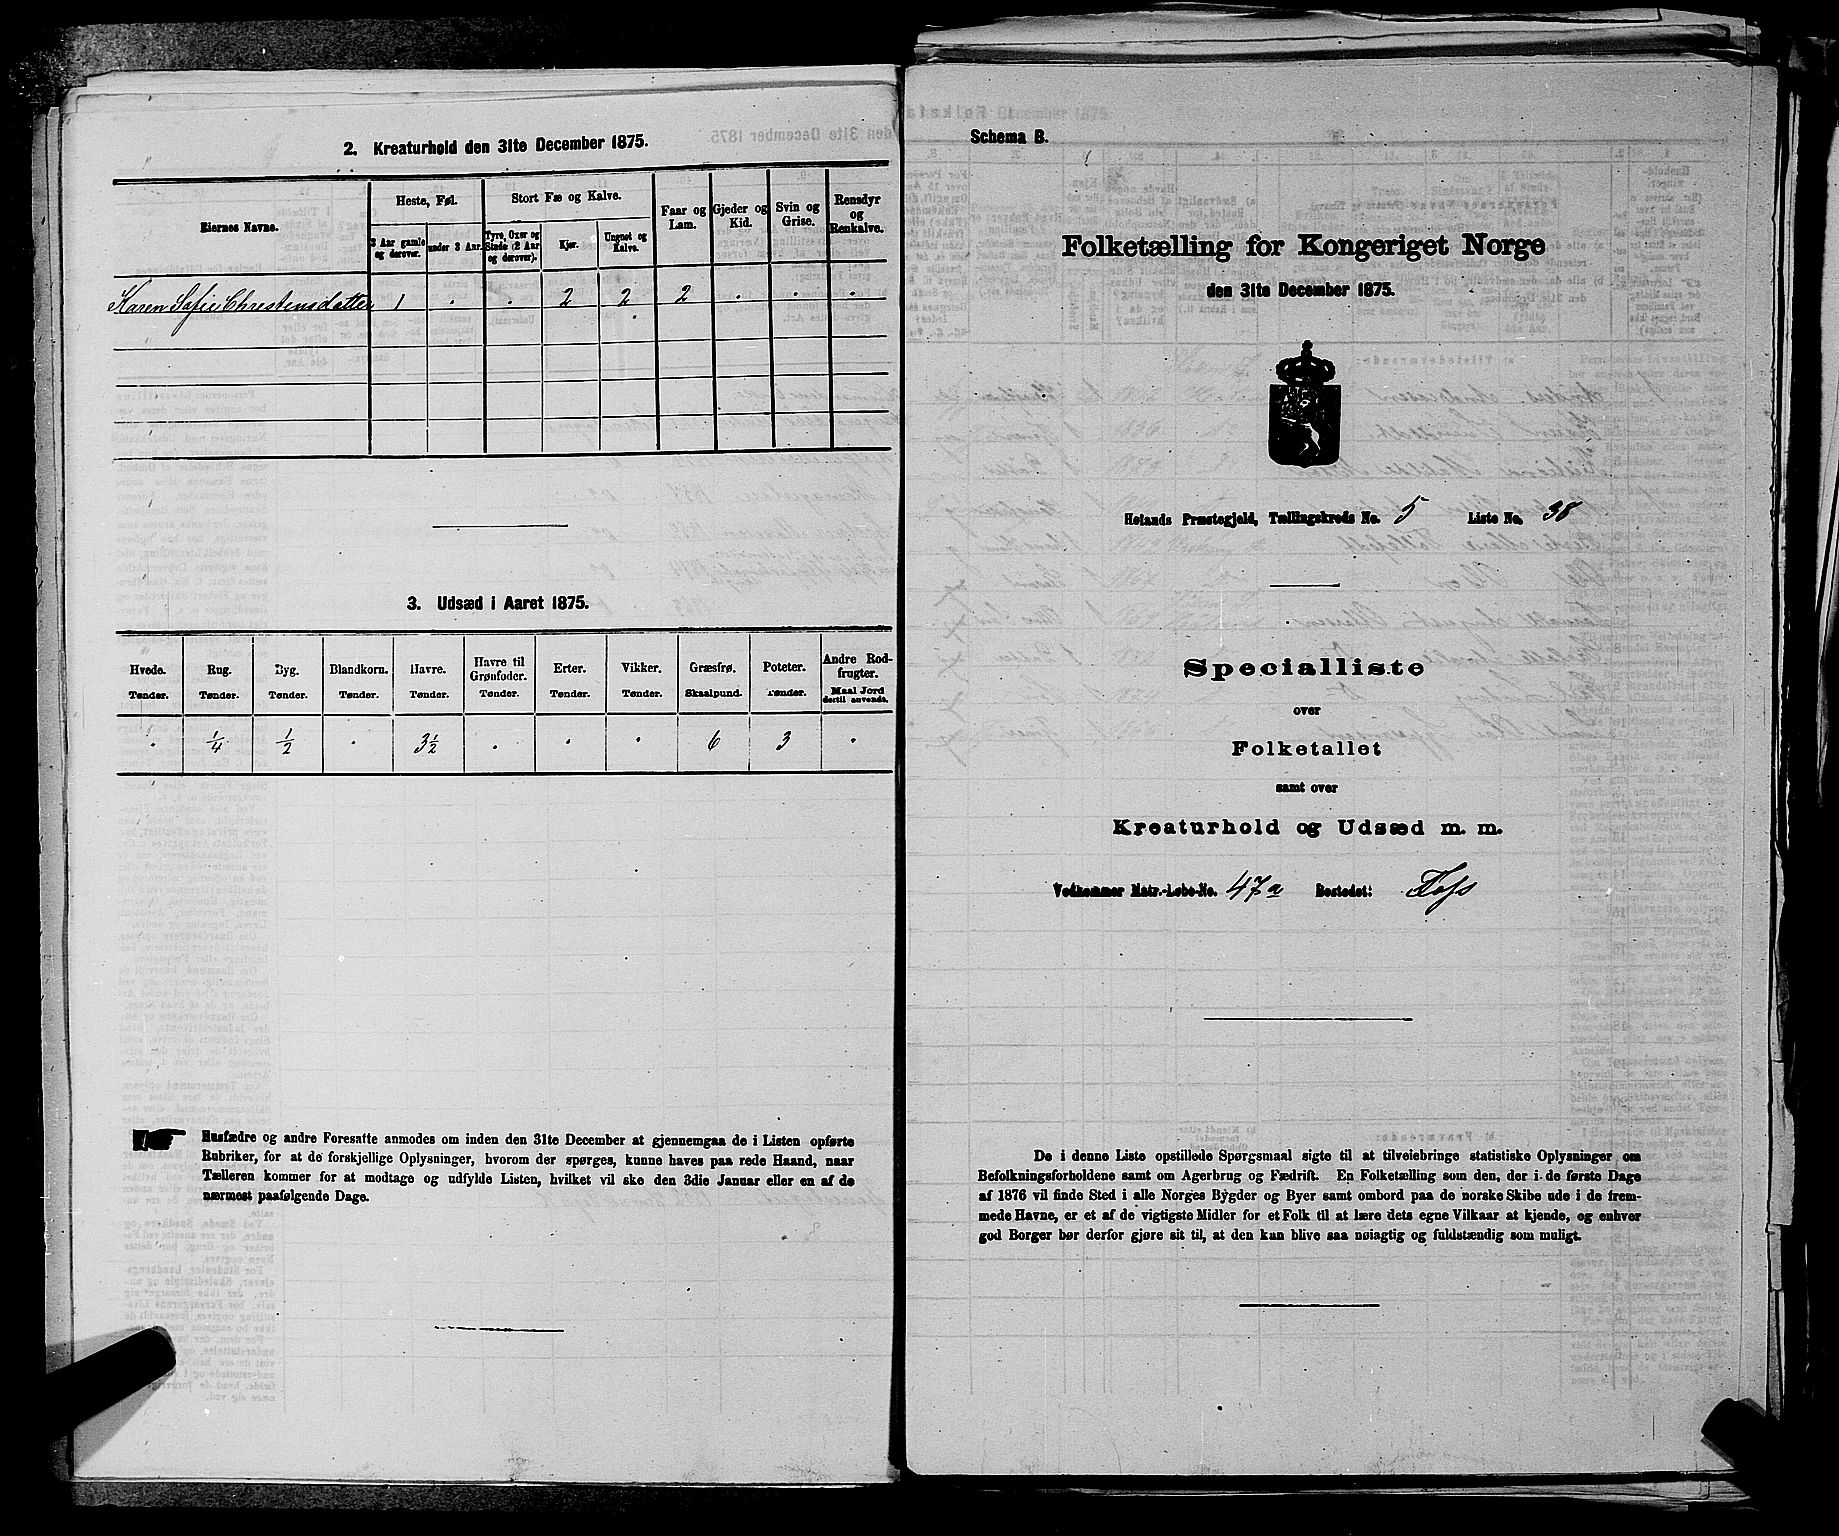 2. Kreaturhold den 31te December 1875.
Eiernes Navne.
Heste, Føl.
3 Aar gamle og derover.
under 3 Aar.
Stort Fæ og Kalve.
Tyre, Oxer og Stude (2 Aar og derover).
Kjør.
Ungnet og Kalve.
Faar og Lam.
Gjeder og Kid.
Svin og Grise.
Rensdyr og Renkalve.
Karen Sofie Christensdatter 1 . . 2 2 2 . . .
3. Udsæd i Aaret 1875.
Hvede. Rug. Byg. Blandkorn. Havre. Havre til Grønfoder. Erter. Vikker. Græsfrø. Poteter. Andre Rodfrugter.
Tønder. Tønder. Tønder. Tønder. Tønder. Tønder. Tønder. Tønder. Skaalpund. Tønder. Maal Jord dertil anvendt.
. 1/4 1/2 . 3 1/2 . . . 6 3 .
Husfædre og andre Foresatte anmodes om inden den 31te December at gjennemgaa de i Listen opførte
Rubriker, for at de forskjellige Oplysninger, hvorom der spørges, kunne haves paa rede Haand, naar
Tælleren kommer for at modtage og udfylde Listen, hvilket vil ske den 3die Januar eller en af de
nærmest paafølgende Dage.
Schema B.
Folketælling for Kongeriget Norge
den 31te December 1875.
Hølands Præstegjeld, Tællingskreds No. 5 Liste No. 38
Specialliste
over
Folketallet
samt over
Kreaturhold og Udsæd m. m.
Vedkommer Matr.-Løbe-No. 47a Bostedet:
De i denne Liste opstillede Spørgsmaal sigte til at tilveiebringe statistiske Oplysninger om
Befolkningsforholdene samt om Agerbrug og Fædrift. En Folketælling som den, der i de første Dage
af 1876 vil finde Sted i alle Norges Bygder og Byer samt ombord paa de norske Skibe ude i de frem-
mede Havne, er et af de vigtigste Midler for et Folk til at lære dets egne Vilkaar at kjende, og enhver
god Borger bør derfor gjøre sit til, at den kan blive saa nøiagtig og fuldstændig som muligt.